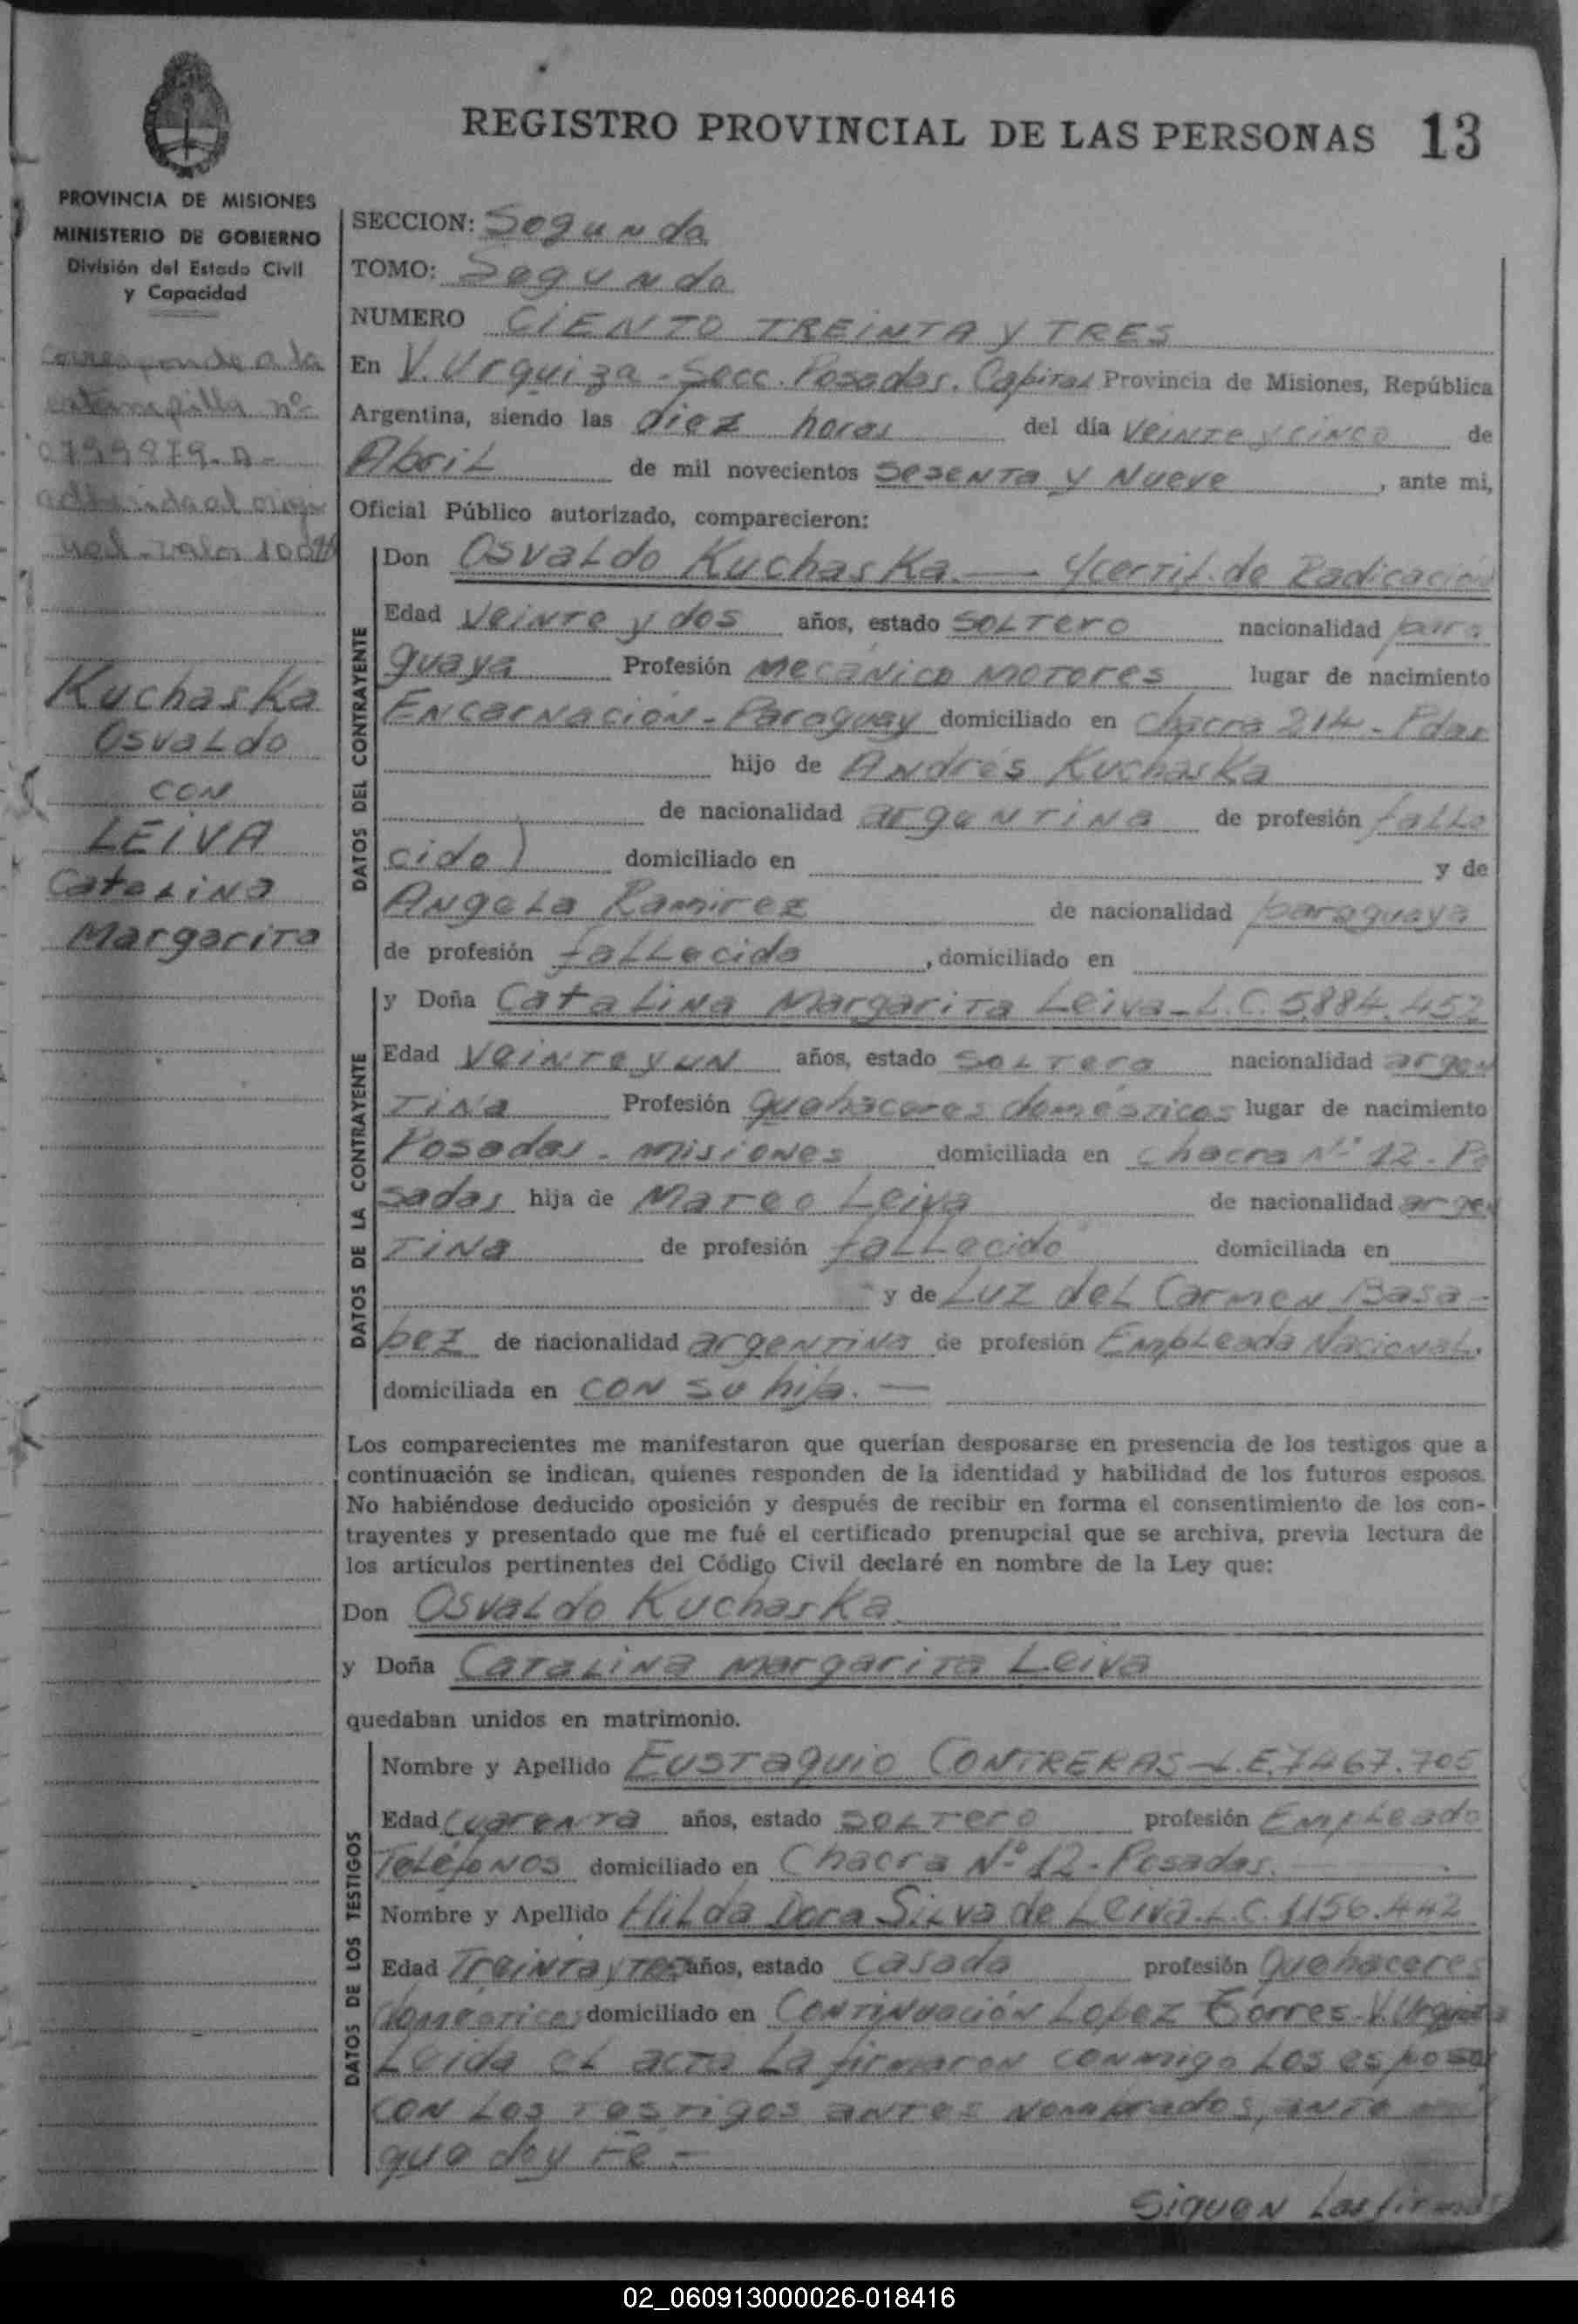 REGISTRO PROVINCIAL DE LAS PERSONAS 13
PROVINCIA DE MISIONES
MINISTERIO DE GOBIERNO
División del Estado Civil
y Capacidad
corresponde a la
estampilla nº
0799879-A-
adherida al origi
nal - valor 100
Kuchaska
Osvaldo
CON
LEIVA
Catalina
Margarita
SECCION: Segunda
TOMO: Segundo
NUMERO CIENTO TREINTA Y TRES
En V. Urquiza - Secc. Posadas. Capital Provincia de Misiones, República
Argentina, siendo las diez horas del día veinte y cinco de
Abril de mil novecientos sesenta y Nueve, ante mi,
Oficial Público autorizado, comparecieron:
DATOS DEL CONTRAYENTE
Don Osvaldo Kuchaska. — y certif. de Radicación
Edad veinte y dos años, estado soltero nacionalidad para
guaya Profesión mecánico motores lugar de nacimiento
Encarnación - Paraguay domiciliado en chacra 214 - Pdas
hijo de Andrés Kuchaska
de nacionalidad argentina de profesión falle
cido) domiciliado en y de
Angela Ramirez de nacionalidad paraguaya
de profesión fallecida, domiciliado en
DATOS DE LA CONTRAYENTE
y Doña Catalina Margarita Leiva - L.C. 5.884.452
Edad veinte y un años, estado soltera nacionalidad argen
tina Profesión quehaceres domésticos lugar de nacimiento
Posadas - misiones domiciliada en chacra Nº 12 - Po
sadas hija de Marco Leiva de nacionalidad argen
tina de profesión fallecido domiciliada en
y de Luz del Carmen Basa-
bez de nacionalidad argentina de profesión Empleada Nacional.
domiciliada en con su hija. —
Los comparecientes me manifestaron que querían desposarse en presencia de los testigos que a
continuación se indican, quienes responden de la identidad y habilidad de los futuros esposos.
No habiéndose deducido oposición y después de recibir en forma el consentimiento de los con-
trayentes y presentado que me fué el certificado prenupcial que se archiva, previa lectura de
los artículos pertinentes del Código Civil declaré en nombre de la Ley que:
Don Osvaldo Kuchaska
y Doña Catalina Margarita Leiva
quedaban unidos en matrimonio.
DATOS DE LOS TESTIGOS
Nombre y Apellido Eustaquio CONTRERAS - L.E. 7467.705
Edad cuarenta años, estado soltero profesión Empleado
Teléfonos domiciliado en Chacra Nº 12 - Posadas.
Nombre y Apellido Hilda Dora Silva de Leiva. L.C. 1156.442
Edad Treinta y tres años, estado casada profesión Quehaceres
domésticos domiciliado en Continuación Lopez Torres - V. Urquiza
Leida el acta la firmaron conmigo los esposos
con los testigos antes nombrados, ante mi
que doy Fe.-
Siguen las firmas
02_060913000026-018416